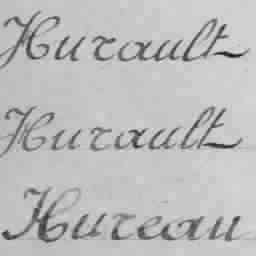 Hurault
Hurault
Hureau